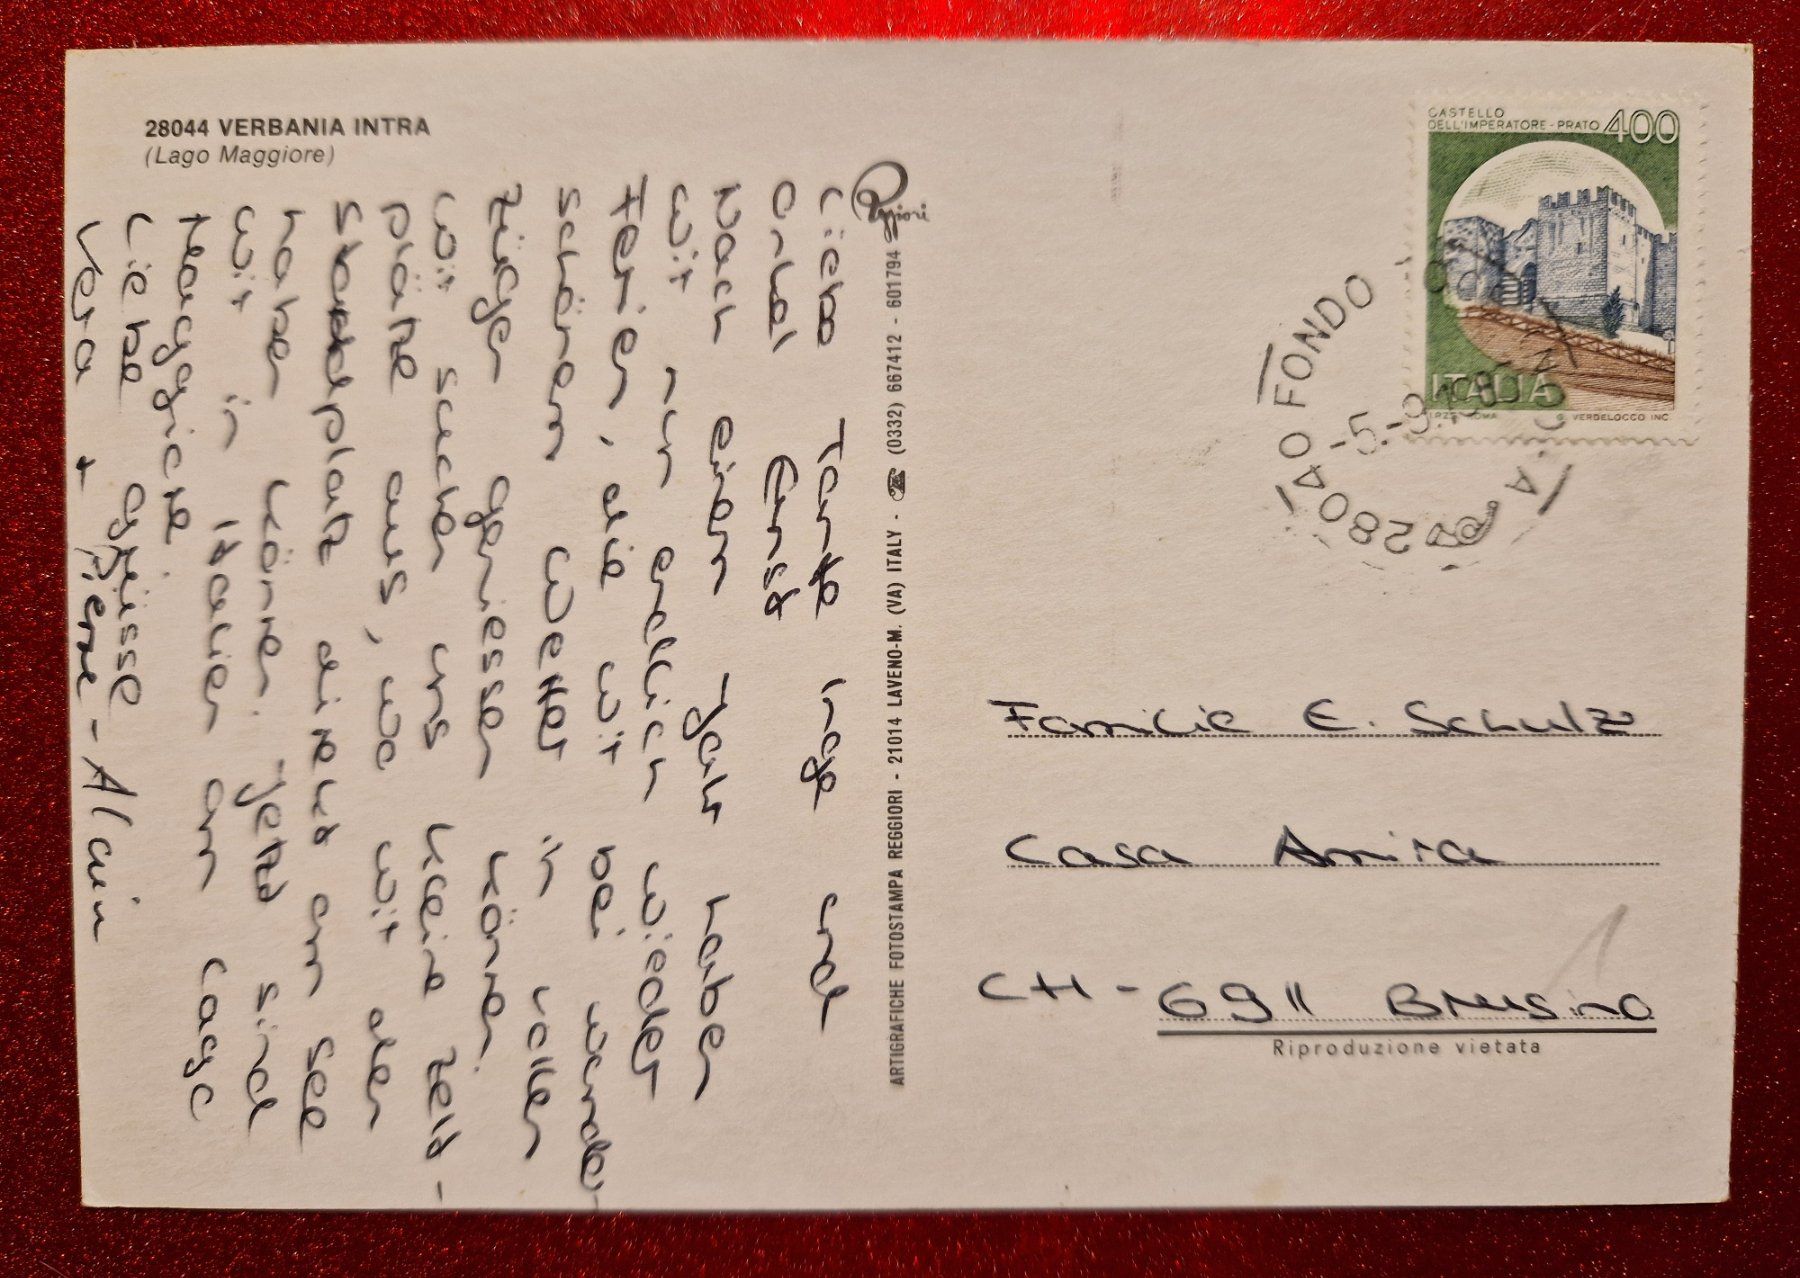 28044 VERBANIA INTRA
(Lago Maggiore)
Liebe Tante Inge und
Onkel Ernst
Nach einem Jahr haben
wir nun endlich wieder
Ferien, die wir bei wunder-
schönem Wetter in vollen
Zügen geniessen können.
Wir suchen uns kleine Zelt-
plätze aus, wo wir den
Standplatz direkt am See
haben können. Jetzt sind
wir in Italien am Lago
Maggiore.
Liebe grüsse
Vera + Pierre-Alain
Reggiori
ARTIGRAFICHE FOTOSTAMPA REGGIORI - 21014 LAVENO-M. (VA) ITALY - ☎ (0332) 667412 - 601794
CASTELLO
DELL'IMPERATORE - PRATO 400
ITALIA
I.P.Z.S. ROMA G. VERDELOCCO INC.
28040 FONDO
-5.-9.
Familie E. Schulz
Casa Amira
CH - 6911 Brusino
Riproduzione vietata
1